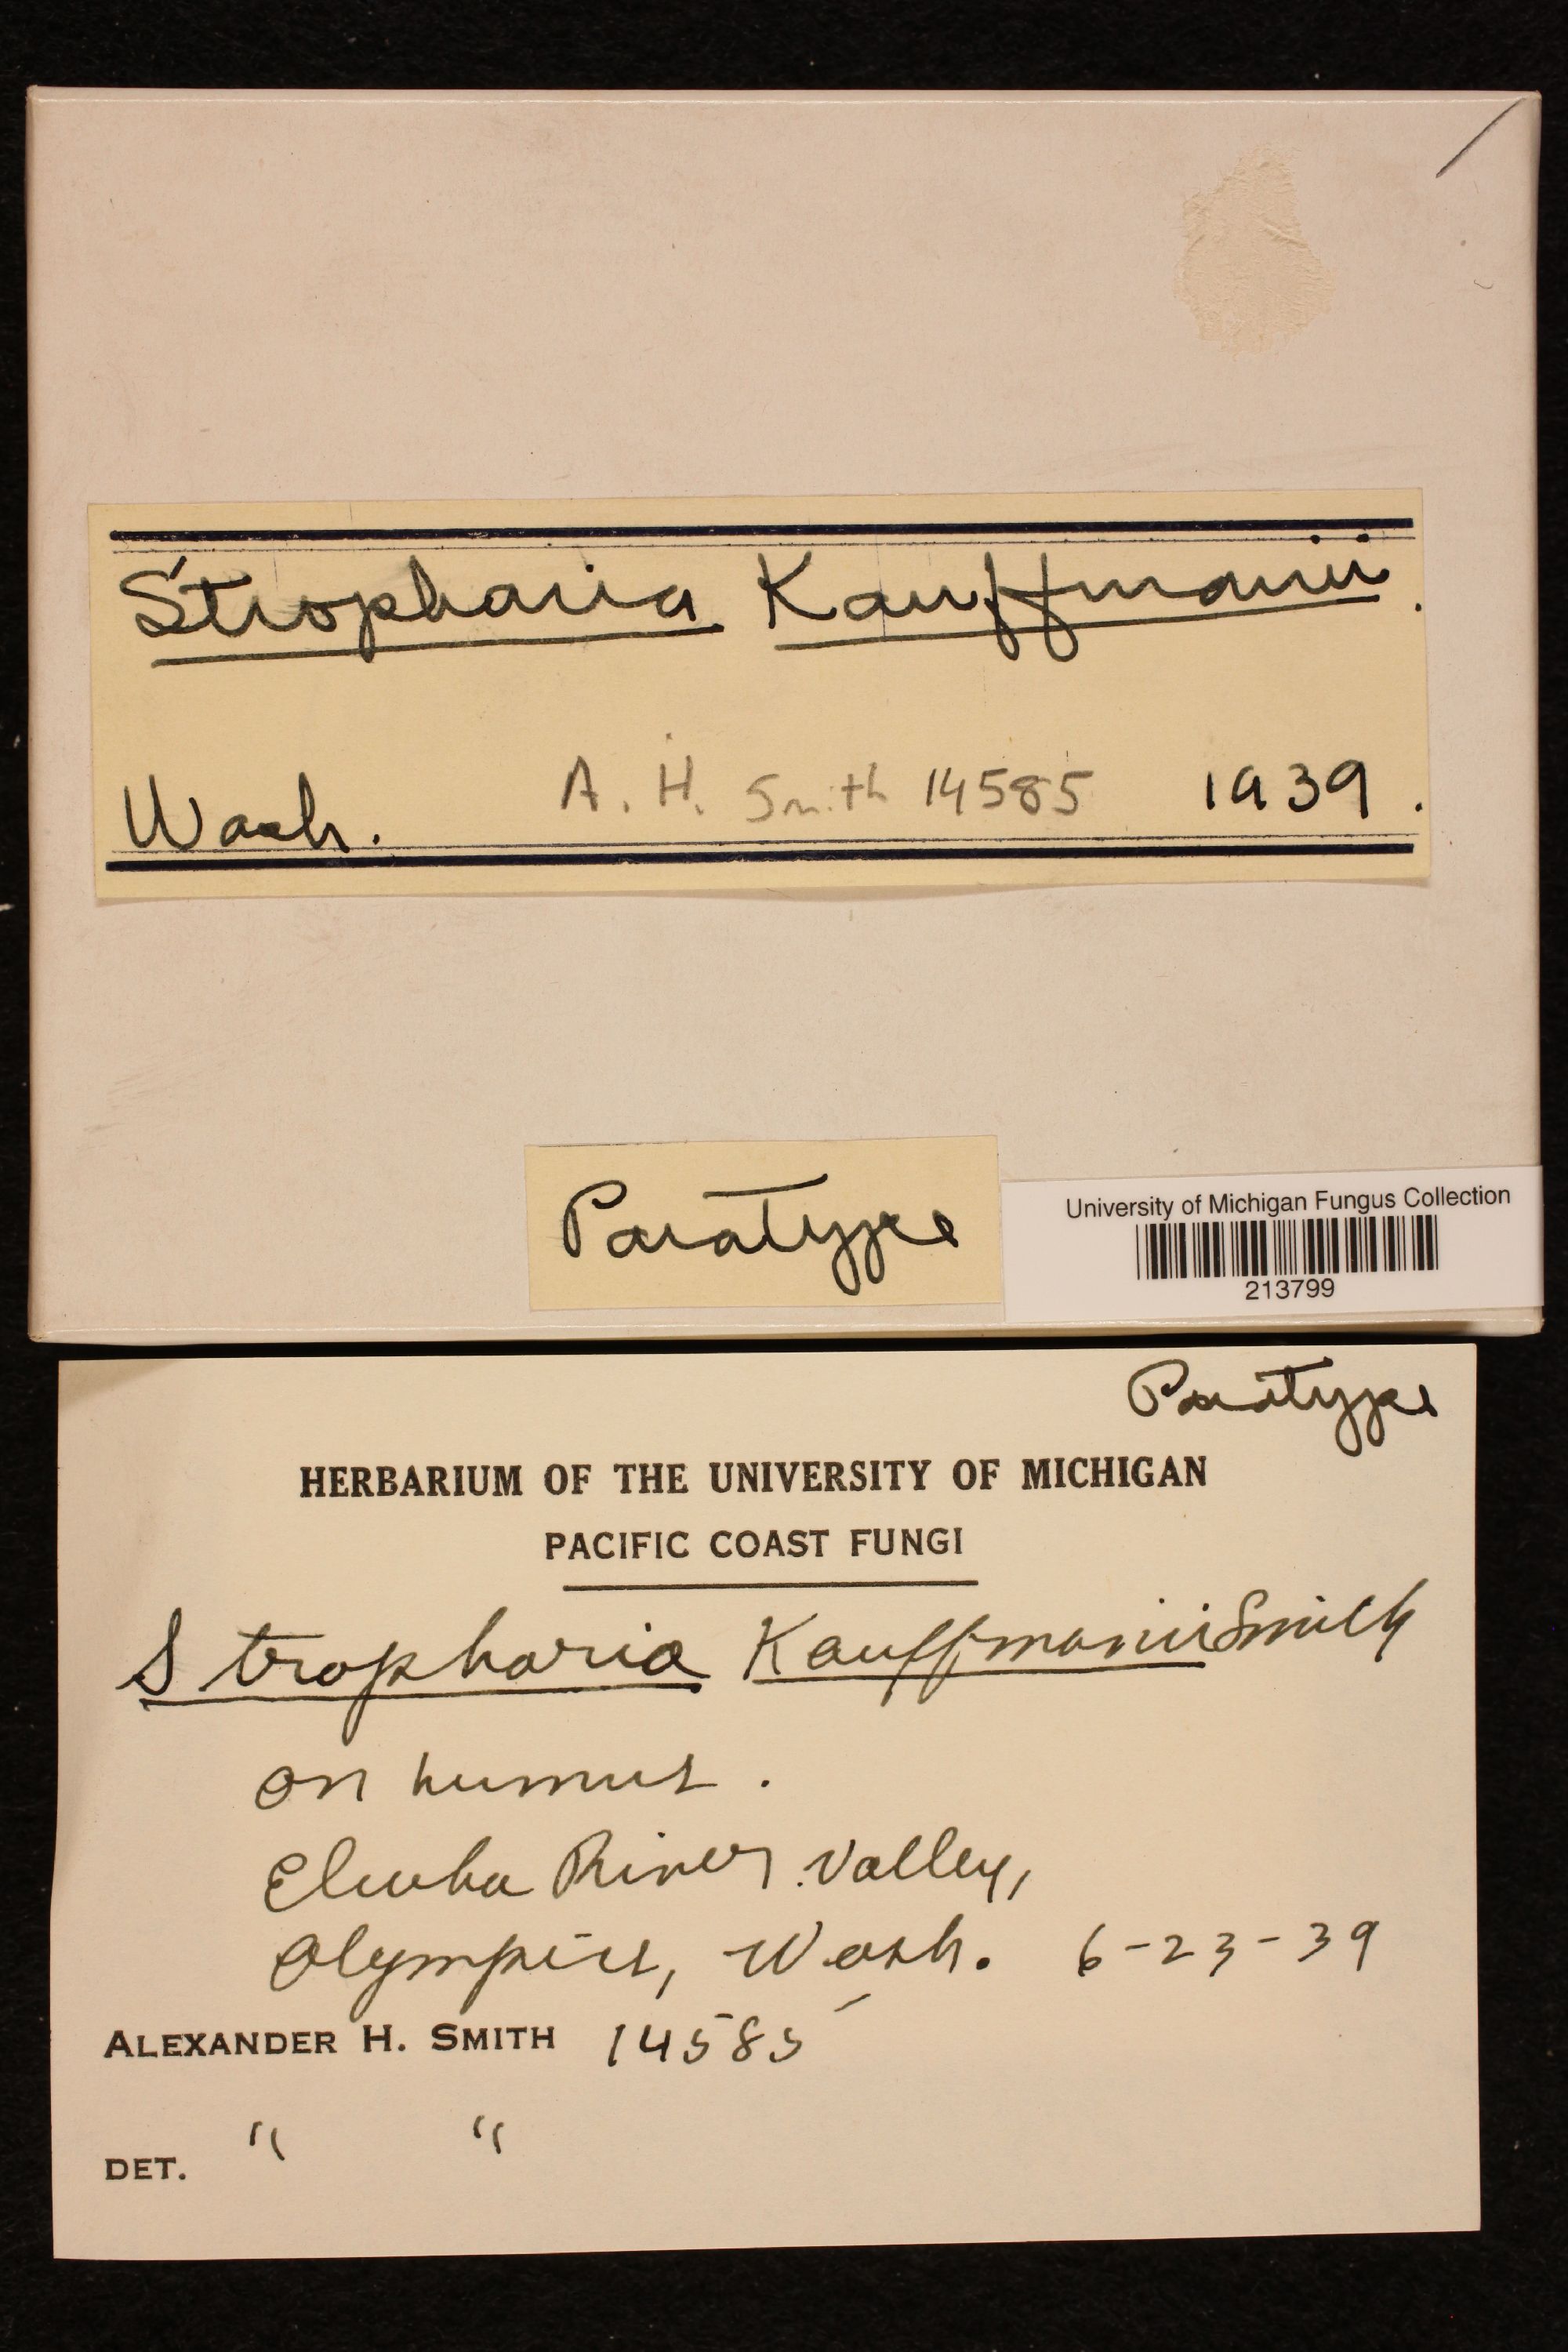 Stropharia Kauffmanii.
Wash. A. H. Smith 14585 1939.
Paratype
University of Michigan Fungus Collection
213799
Paratype
HERBARIUM OF THE UNIVERSITY OF MICHIGAN
PACIFIC COAST FUNGI
Stropharia Kauffmanii Smith
on humus.
Elwha River Valley,
Olympics, Wash. 6-23-39
ALEXANDER H. SMITH 14585
DET. " "